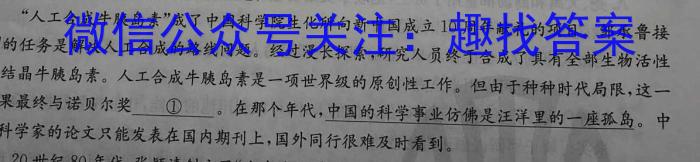 "人工合成牛胰岛素"成了中国科学院生化所向新中国成立10周年献礼的项目。
微信公众号关注：趣找答案
的任务是解决人工合成的路线问题。经过漫长探索，研究人员终于合成了具有全部生物活性
结晶牛胰岛素。人工合成牛胰岛素是一项世界级的原创性工作。但由于种种时代局限，这一
果最终与诺贝尔奖 ① 。在那个年代，中国的科学事业仿佛是汪洋里的一座孤岛。中
科学家的论文只能发表在国内期刊上，国外同行很难及时看到。
20世纪80年代